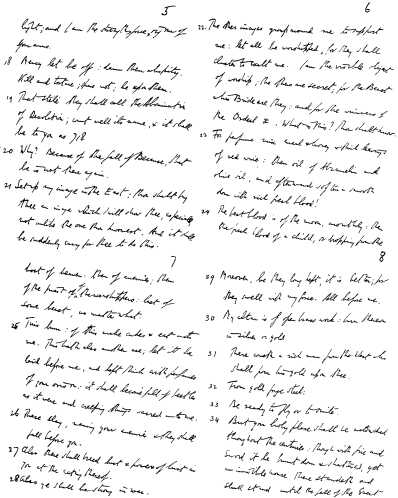 5
light; and I am the strength, force, vigour of
your arms.
18 Mercy let be off: damn them who pity.
Kill and torture; spare not; be upon them.
19 That stélé they shall call the Abomination
of Desolation; count well its name, & it shall
be to you as 718
20 Why? Because of the fall of Because, that
he is not there again.
21 Set up my image in the East: thou shalt buy
thee an image which I will show thee, especially
not unlike the one thou knowest. And it shall
be suddenly easy for thee to do this.
6
22. The other images group around me to support
me: let all be worshipped, for they shall
cluster to exalt me. I am the visible object
of worship; the others are secret; for the Beast
& his Bride are they: and for the winners of
the Ordeal x. What is this? Thou shalt know.
23 For perfume mix meal & honey & thick leavings
of red wine: then oil of Abramelin and
olive oil, and afterward soften & smooth
down with rich fresh blood!
24 The best blood is of the moon, monthly: then
the fresh blood of a child, or dropping from the
7
host of heaven: then of enemies; then
of the priest or of the worshippers: last of
some beast, no matter what.
25 This burn: of this make cakes & eat unto
me. This hath also another use; let it be
laid before me, and kept thick with perfumes
of your orison: it shall become full of beetles
as it were and creeping things sacred unto me.
26 These slay, naming your enemies & they shall
fall before you.
27 Also these shall breed lust & power of lust in
you at the eating thereof.
28 Also ye shall be strong in war.
8
29 Moreover, be they long kept, it is better; for
they swell with my force. All before me.
30 My altar is of open brass work: burn thereon
in silver or gold
31 There cometh a rich man from the West who
shall pour his gold upon thee.
32 From gold forge steel:
33 Be ready to fly or to smite.
34 But your holy place shall be untouched
throughout the centuries: though with fire and
sword it be burnt down & shattered, yet
an invisible house there standeth and
shall stand until the fall of the Great